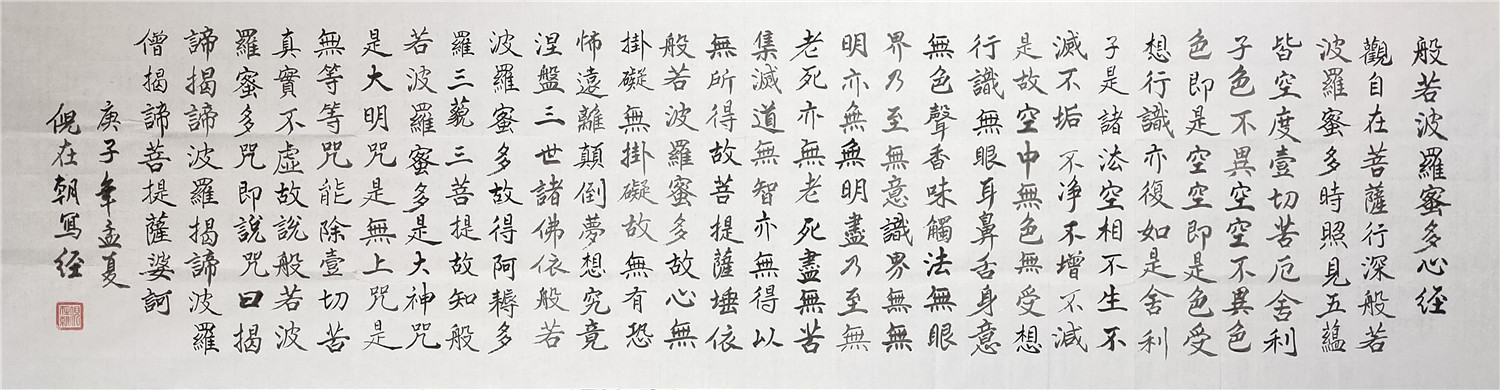 般若波羅蜜多心经
觀自在菩薩行深般若
波羅蜜多時照見五蘊
皆空度壹切苦厄舍利
子色不異空空不異色
色即是空空即是色受
想行識亦復如是舍利
子是諸法空相不生不
滅不垢不净不增不減
是故空中無色無受想
行識無眼耳鼻舌身意
無色聲香味觸法無眼
界乃至無意識界無無
明亦無無明盡乃至無
老死亦無老死盡無苦
集滅道無智亦無得以
無所得故菩提薩埵依
般若波羅蜜多故心無
掛礙無掛礙故無有恐
怖遠離顛倒夢想究竟
涅盤三世諸佛依般若
波羅蜜多故得阿耨多
羅三藐三菩提故知般
若波羅蜜多是大神咒
是大明咒是無上咒是
無等等咒能除壹切苦
真實不虛故說般若波
羅蜜多咒即說咒曰揭
諦揭諦波羅揭諦波羅
僧揭諦菩提薩婆訶
庚子年孟夏
倪在朝寫经